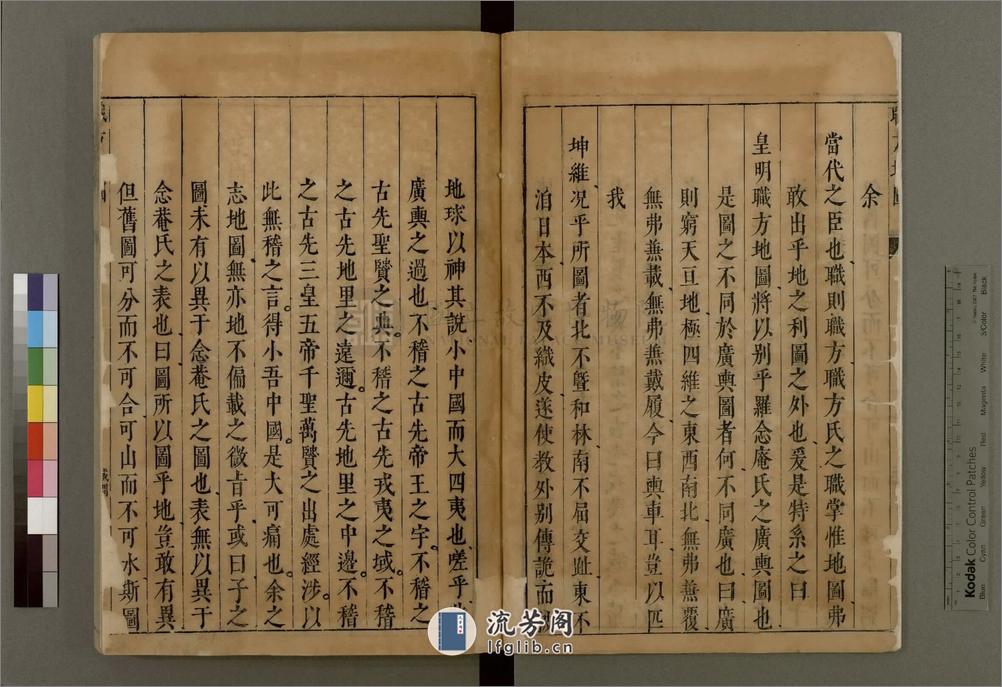 余
當代之臣也職則職方職方氏之職掌惟地圖弗
敢出乎地之利圖之外也爰是特系之曰
皇明職方地圖將以別乎羅念庵氏之廣輿圖也
是圖之不同於廣輿圖者何不同廣也曰廣
則窮天亘地極四維之東西南北無弗無覆
無弗無載無弗無戴履今曰輿車耳豈以匹
我
坤維況乎所圖者北不暨和林南不屆交趾東不
洎日本西不及織皮遂使教外別傳詭而
地球以神其說小中國而大四夷也嗟乎
廣輿之過也不稽之古先帝王之宇不稽之
古先聖贒之典不稽之古先戎夷之域不稽
之古先地里之遠邇古先地里之中邊不稽
之古先三皇五帝千聖萬贒之出處經涉以
此無稽之言得小吾中國是大可痛也余之
志地圖無亦地不偏載之微旨乎或曰子之
圖未有以異于念菴氏之圖也表無以異于
念菴氏之表也曰圖所以圖乎地豈敢有異
但舊圖可分而不可合可山而不可水斯圖
流芳阁
lfglib.cn
Kodak Color Control Patches
Blue
Cyan
Green
Yellow
Red
Magenta
White
3/Color
Black